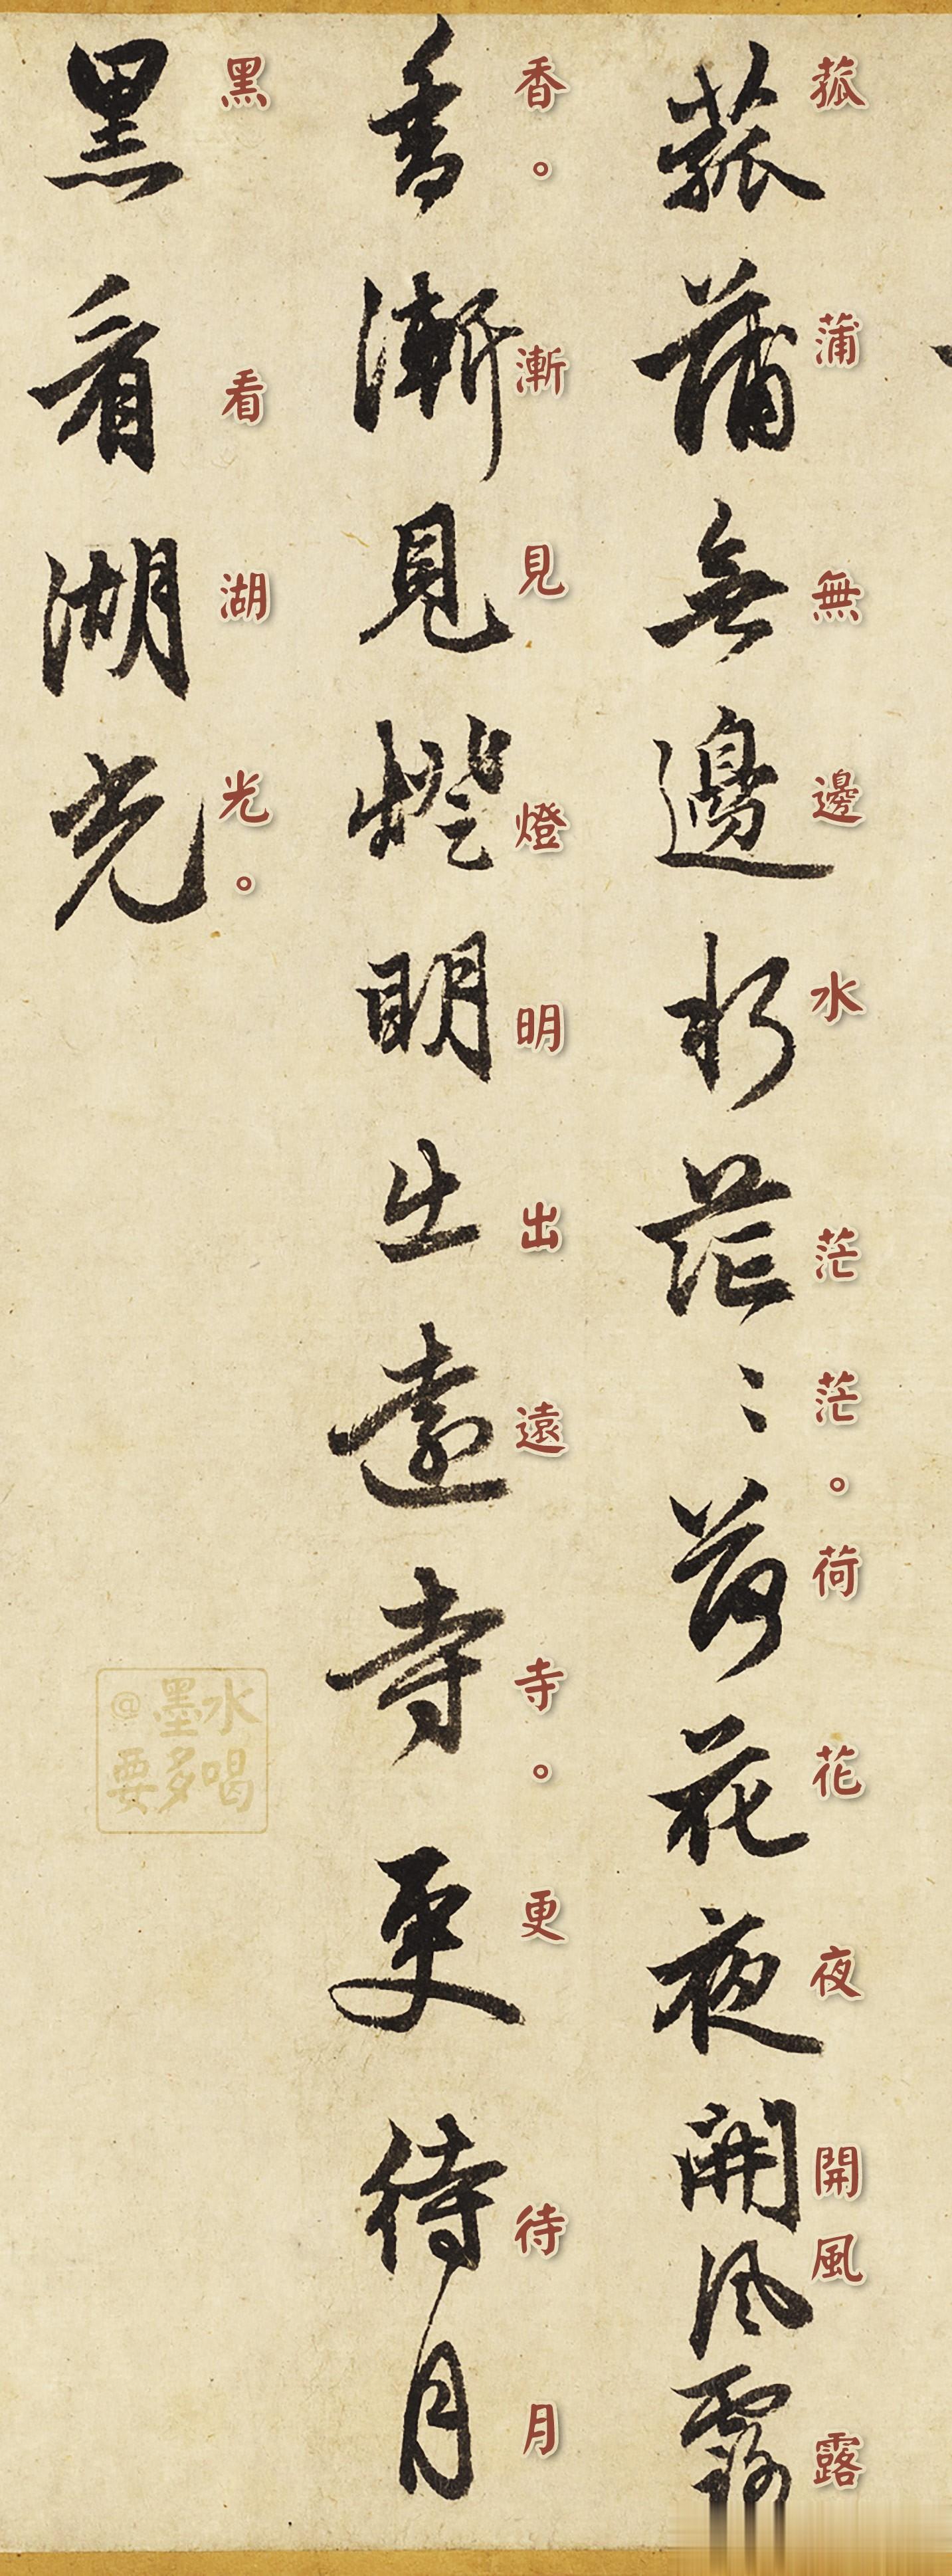 菰蒲無邊水茫茫。荷花夜開風露
香。漸見燈明出遠寺。更待月
黑看湖光。
菰蒲無邊水茫〻荷花夜開風露
香漸見燈明出遠寺更待月
黑看湖光
@墨水
要多喝